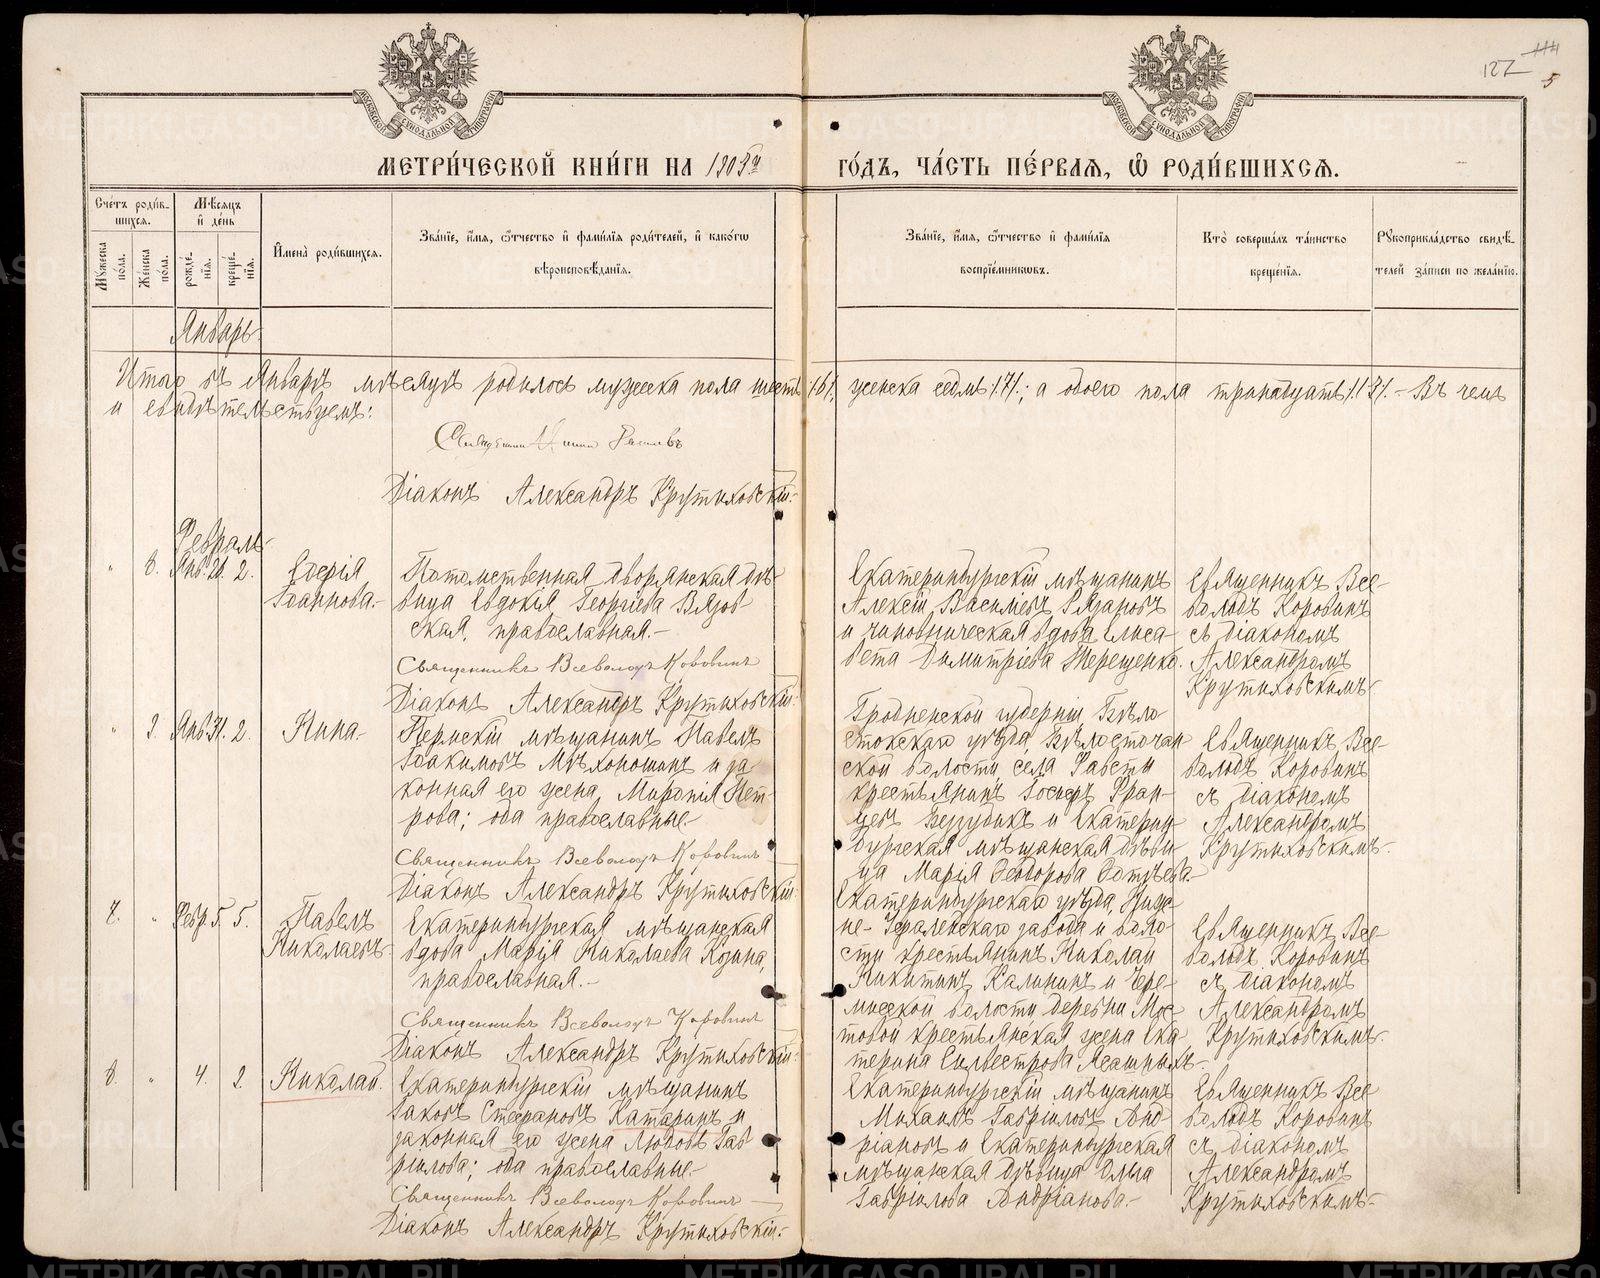 127
5
МЕТРИ́ЧЕСКОЙ КНИ́ГИ НА 1905й ГО́ДЪ, ЧА́СТЬ ПЕ́РВАЯ, Ѡ РОДИ́ВШИХСЯ.
Сче́тъ роди́вшихся.
Мѣ́сяцъ и де́нь
Му́жеска по́ла.
Же́нска по́ла.
рожде́нія.
креще́нія.
Имена̀ роди́вшихся.
Зва́ніе, и́мя, ѻ́тчество и фами́лія роди́телей, и како́гѡ
вѣроисповѣ́данія.
Зва́ніе, и́мя, ѻ́тчество и фами́лія
воспріе́мниковъ.
Кто̀ соверша́лъ та́инство
креще́нія.
Рукоприкла́дство свидѣ́-
телей за́писи по жела́нію.
Январь.
Итого въ Январѣ мѣсяцѣ родилось мужеска пола шесть /6/, женска седмь /7/; а обоего пола тринадцать /13/. – Въ чемъ
и свидѣтельствуемъ:
Священникъ
Діаконъ Александръ Крутиховскій.
Февраль
8. Янв. 21. 2.
Софія
Іоаннова.
Потомственная дворянская дѣ-
вица Евдокія Георгіева Вязов
ская, православная. –
Священникъ Всеволодъ Коровинъ
Діаконъ Александръ Крутиховскій.
Екатеринбургскій мѣщанинъ
Алексій Васильевъ Рязановъ
и чиновническая вдова Елиса-
вета Димитріева Терещенко.
Священникъ Все-
володъ Коровинъ
съ діакономъ
Александромъ
Крутиховскимъ.
9. Янв. 31. 2.
Нина.
Пермскій мѣщанинъ Павелъ
Іоакимовъ Мѣхоношинъ и за
конная его жена, Миропія Пет-
рова; оба православные.
Священникъ Всеволодъ Коровинъ
Діаконъ Александръ Крутиховскій.
Гродненской губерніи, Бѣло
стокскаго уѣзда, Бѣлосточан
ской волости, села Фасты
крестьянинъ Іосифъ Фран-
цевъ и Екатерин-
бургская мѣщанская дѣви-
ца Марія Ѳеодорова
Священникъ Все-
володъ Коровинъ
съ діакономъ
Александромъ
Крутиховскимъ.
7. Февр. 5. 5.
Павелъ
Николаевъ.
Екатеринбургская мѣщанская
вдова Марія Николаева Козина,
православная. –
Священникъ Всеволодъ Коровинъ
Діаконъ Александръ Крутиховскій.
Екатеринбургскаго уѣзда, Ниж-
не-Исетскаго завода и воло
сти крестьянинъ Николай
Никитинъ Калининъ и Чере-
мисской волости, деревни Мос-
товой крестьянская жена Ека
терина Сильвестрова
Священникъ Все-
володъ Коровинъ
съ діакономъ
Александромъ
Крутиховскимъ.
8. 4. 9.
Николай.
Екатеринбургскій мѣщанинъ
Іаковъ Стефановъ Катаринъ и
законная его жена Любовь Гав
ріилова; оба православные.
Священникъ Всеволодъ Коровинъ
Діаконъ Александръ Крутиховскій.
Екатеринбургскій мѣщанинъ
Михаилъ Гавріиловъ Анд-
ріановъ и Екатеринбургская
мѣщанская дѣвица Ольга
Гавріилова Андріанова.
Священникъ Все
володъ Коровинъ
съ діакономъ
Александромъ
Крутиховскимъ.